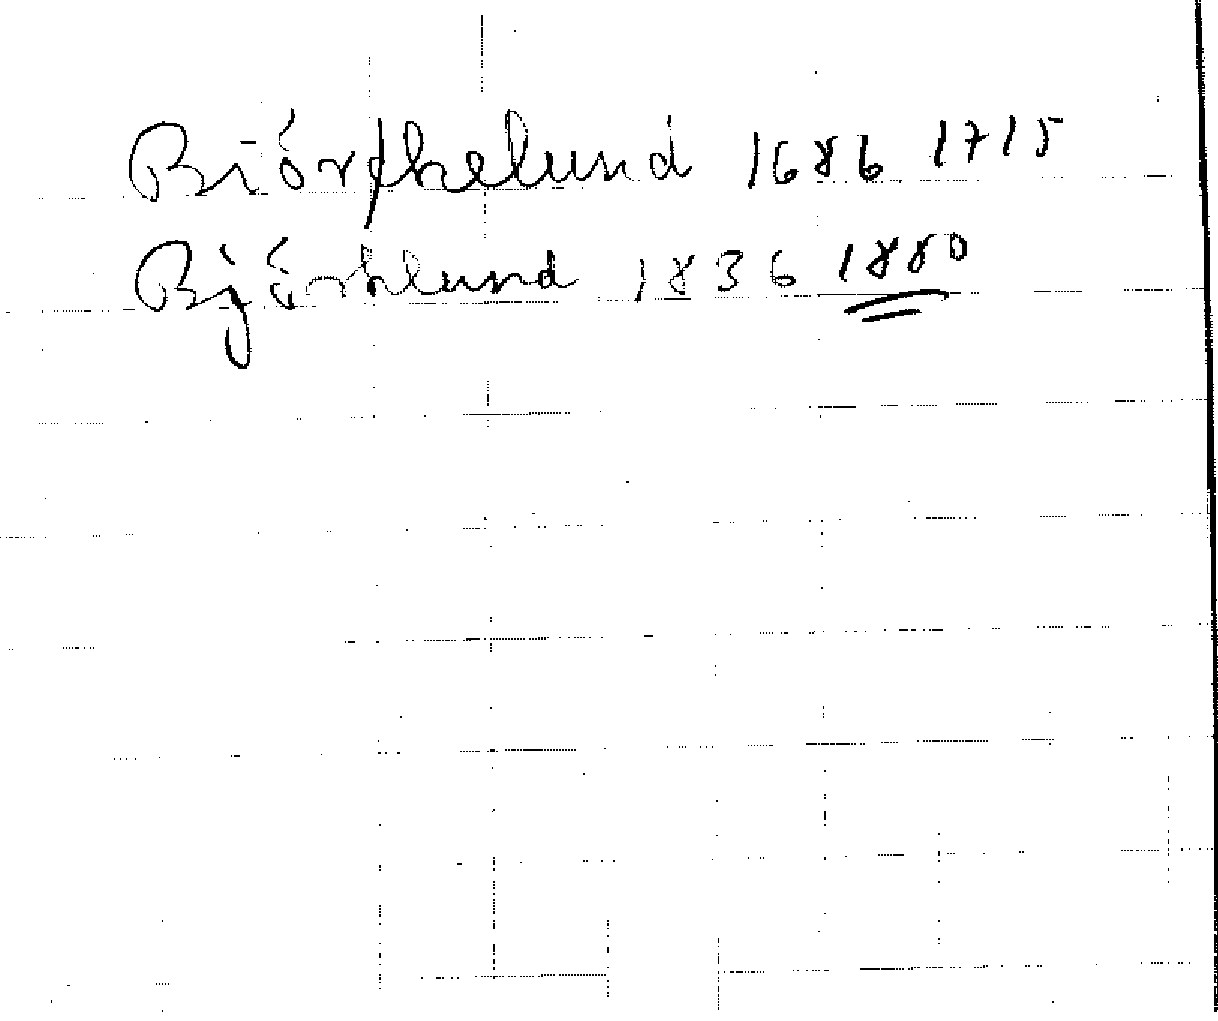 Biörkelund 1686 1715
Björklund 1836 1880